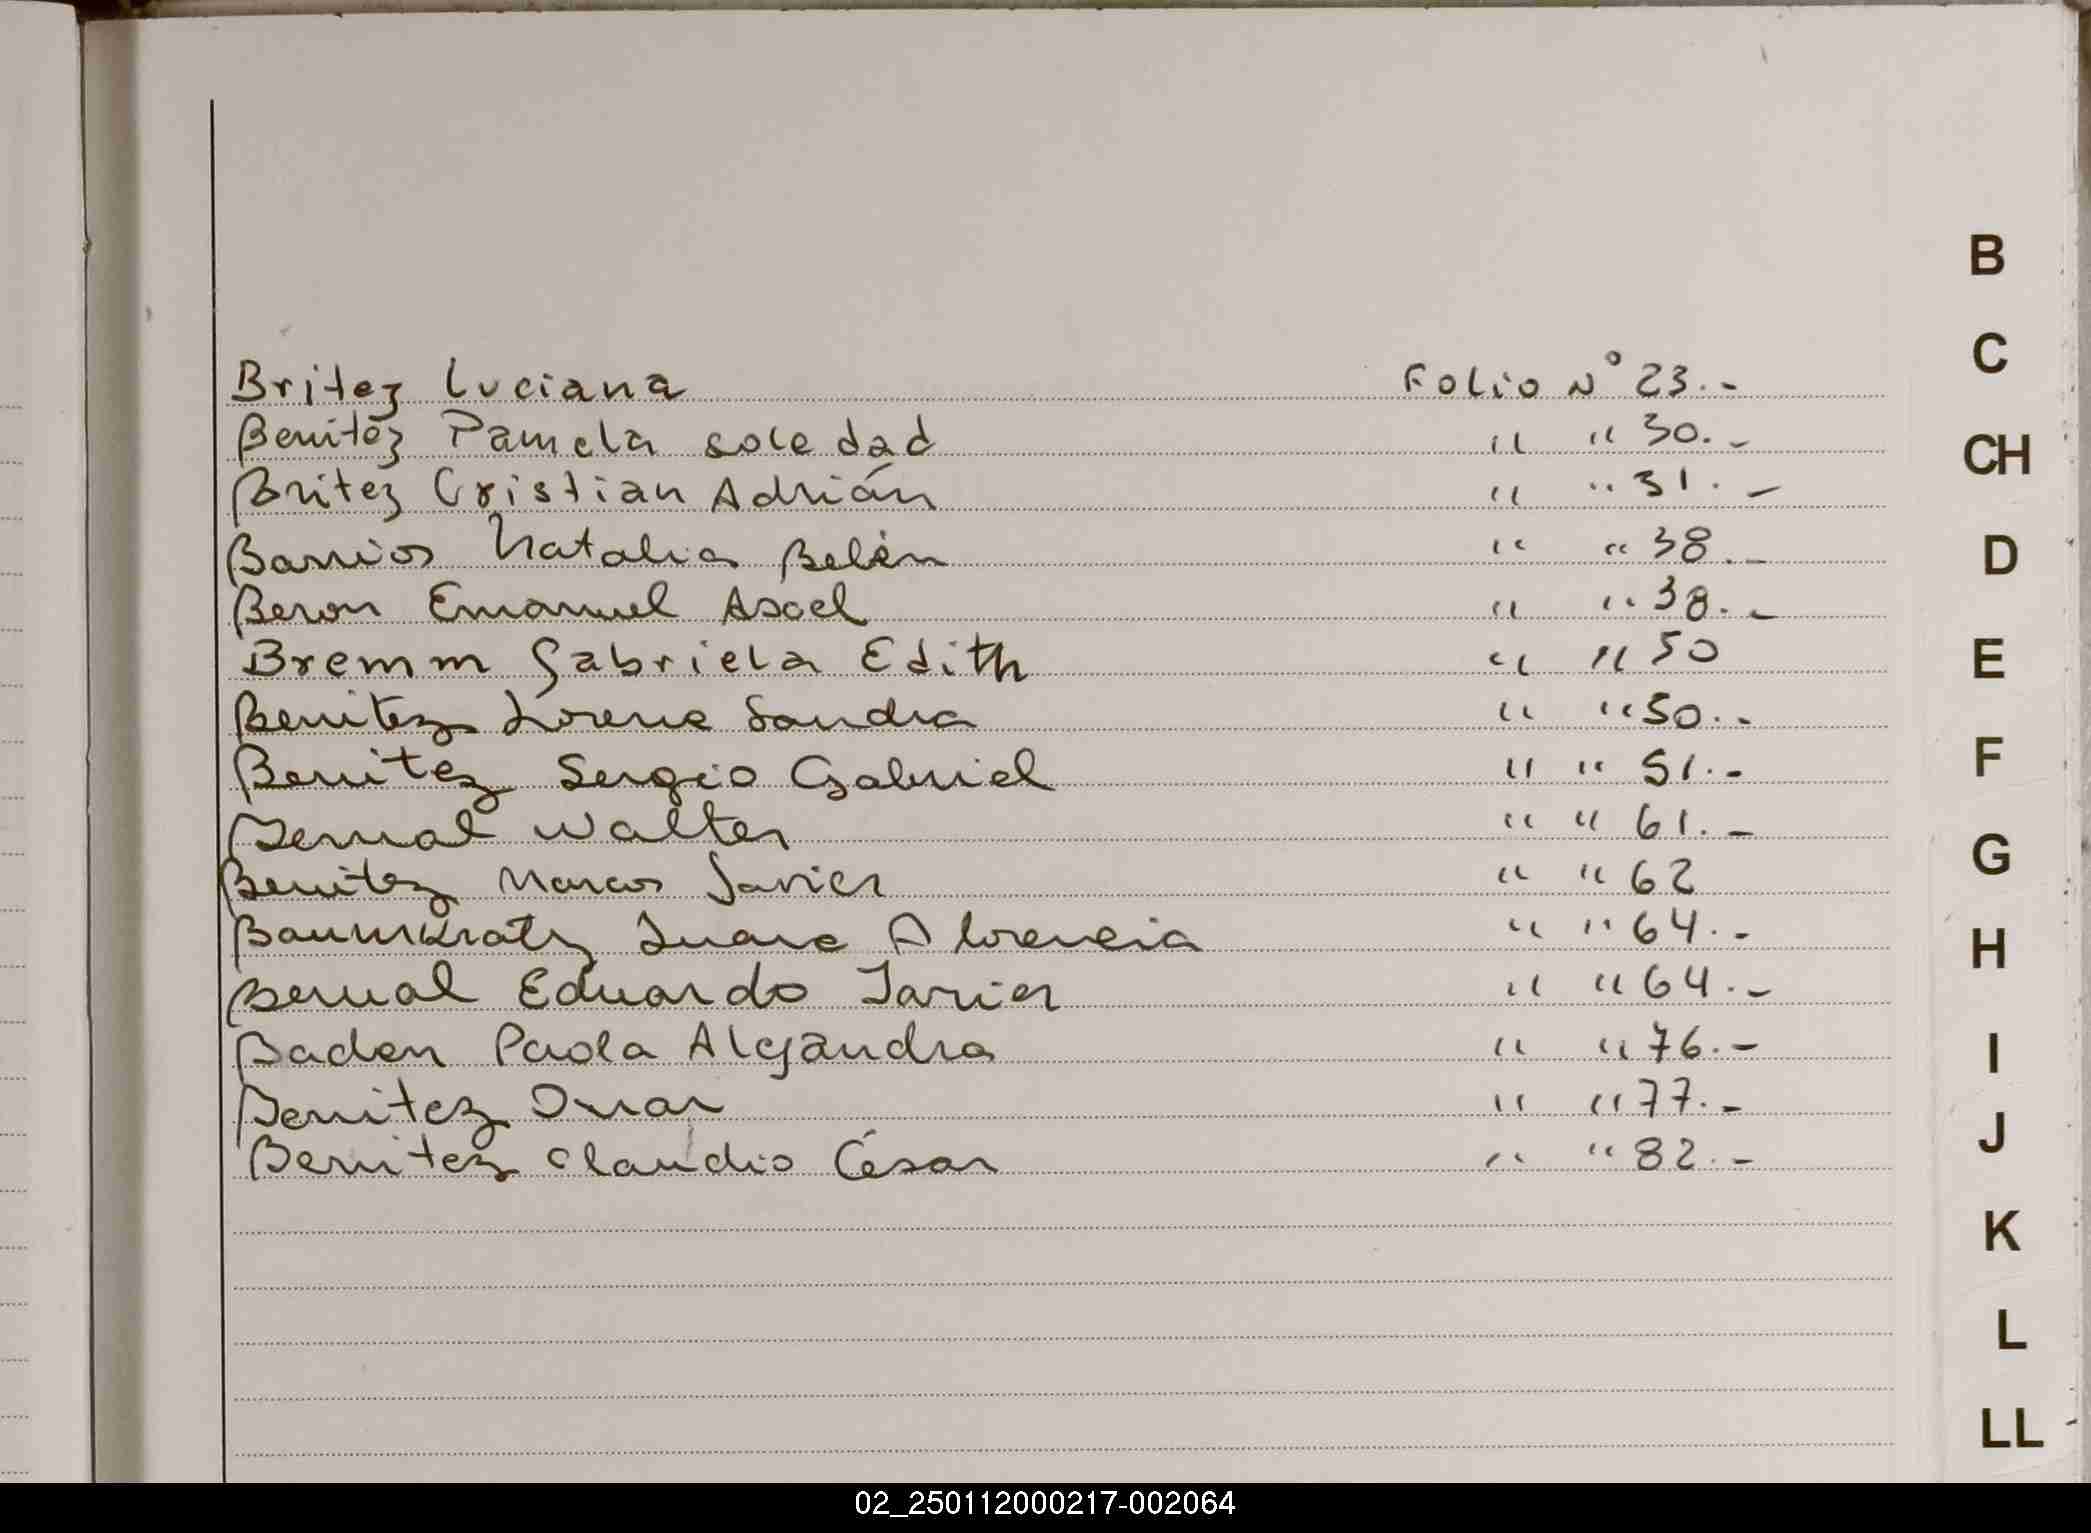 Britez Luciana Folio N° 23.-
Benitez Pamela Soledad " " 30.-
Britez Cristian Adrián " " 31.-
Barrios Natalia Belén " " 38.-
Beron Emanuel Asael " " 38.-
Bremm Gabriela Edith " " 50
Benitez Lorena Sandra " " 50.-
Benitez Sergio Gabriel " " 51.-
Bernal Walter " " 61.-
Benitez Marcos Javier " " 62
Baumkratz Juana Florencia " " 64.-
Bernal Eduardo Javier " " 64.-
Baden Paola Alejandra " " 76.-
Benitez Omar " " 77.-
Benitez Claudio César " " 82.-
B
C
CH
D
E
F
G
H
I
J
K
L
LL
02_250112000217-002064